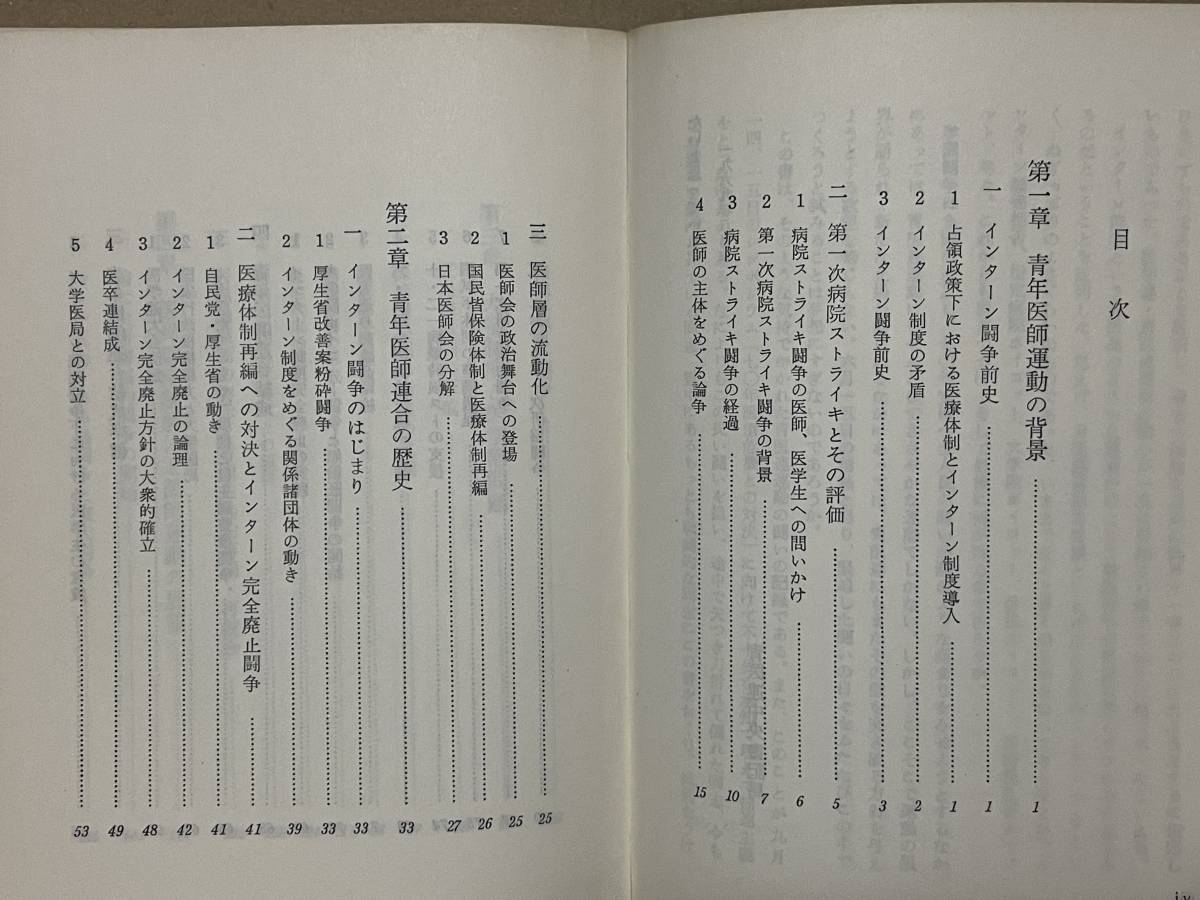 目次
第一章 青年医師運動の背景……1
一 インターン闘争前史……1
1 占領政策下における医療体制とインターン制度導入……1
2 インターン制度の矛盾……2
3 インターン闘争前史……3
二 第一次病院ストライキとその評価……5
1 病院ストライキ闘争の医師、医学生への問いかけ……6
2 第一次病院ストライキ闘争の背景……7
3 病院ストライキ闘争の経過……10
4 医師の主体をめぐる論争……15
iv
三 医師層の流動化……25
1 医師会の政治舞台への登場……25
2 国民皆保険体制と医療体制再編……26
3 日本医師会の分解……27
第二章 青年医師連合の歴史……33
一 インターン闘争のはじまり……33
1 厚生省改善案粉砕闘争……33
2 インターン制度をめぐる関係諸団体の動き……39
二 医療体制再編への対決とインターン完全廃止闘争……41
1 自民党・厚生省の動き……41
2 インターン完全廃止の論理……42
3 インターン完全廃止方針の大衆的確立……48
4 医卒連結成……49
5 大学医局との対立……53